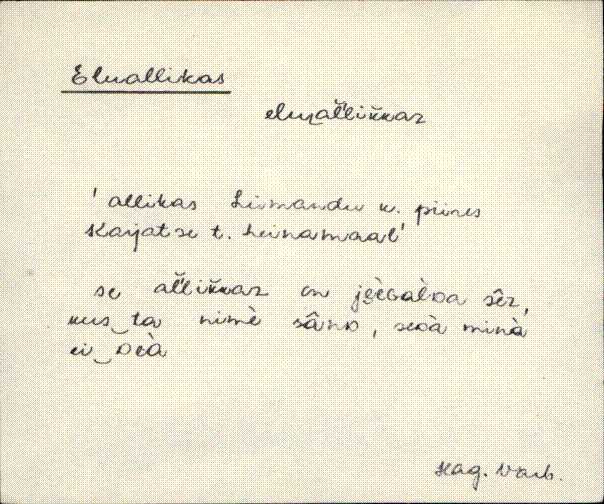 Eluallikas
elu̬al̆likkaz
'allikas Liivandu k. piires
Karjatse t. heinamaal'
se al̆likkaz on
kus‿ta nimè sânD, seDà minà
ei‿Deà
Hag. Varb.